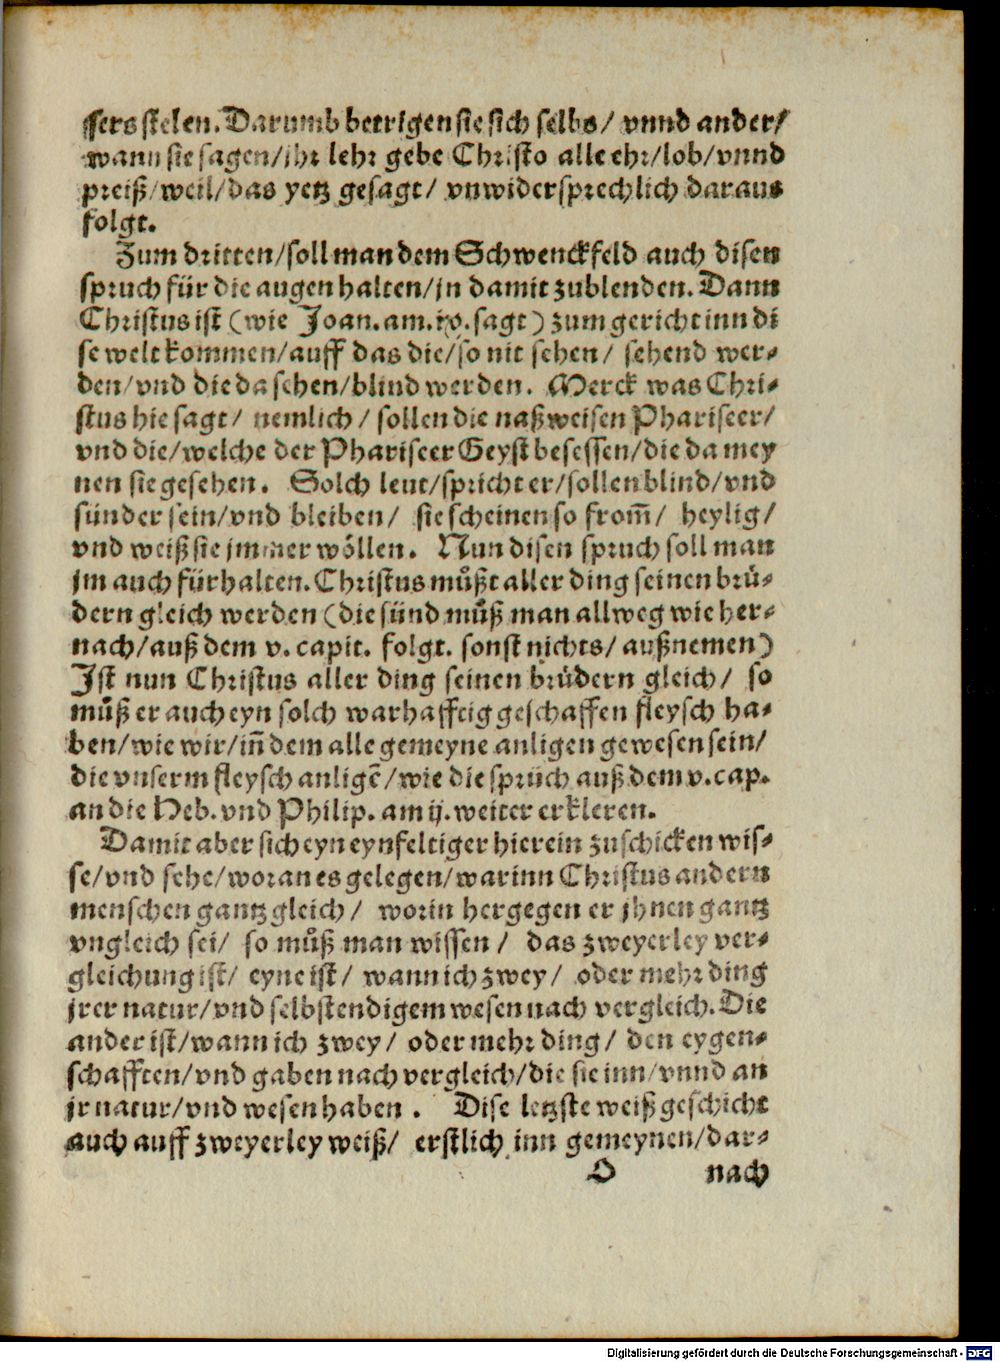 ssers stelen. Darumb betrigen sie sich selbs/ vnnd ander/
wann sie sagen/ jhr lehr gebe Christo alle ehr/ lob/ vnnd
preiß/ weil/ das yetz gesagt/ vnwidersprechlich daraus
folgt.
Zum dritten/ soll man dem Schwenckfeld auch disen
spruch für die augen halten/ jn damit zublenden. Dann
Christus ist (wie Joan. am. sagt) zum gericht inn di
se welt kommen/ auff das die/ so nit sehen/ sehend wer⸗
den/ vnd die da sehen/ blind werden. Merck was Chri⸗
stus hie sagt/ nemlich/ sollen die naßweisen Phariseer/
vnd die/ welche der Phariseer Geyst besessen/ die da mey
nen sie gesehen. Solch leut/ spricht er/ sollen blind/ vnd
sünder sein/ vnd bleiben/ sie scheinen so from̃/ heylig/
vnd weiß sie jmmer wöllen. Nun disen spruch soll man
jm auch fürhalten. Christus můßt aller ding seinen brü⸗
dern gleich werden (die sünd můß man allweg wie her⸗
nach/ auß dem v. capit. folgt. sonst nichts/ außnemen)
Ist nun Christus aller ding seinen brüdern gleich/ so
můß er auch eyn solch warhafftig geschaffen fleysch ha⸗
ben/ wie wir/ iñ dem alle gemeyne anligen gewesen sein/
die vnserm fleysch anligẽ/ wie die sprüch auß dem v. cap.
an die Heb. vnd Philip. am ij. weiter erkleren.
Damit aber sich eyn eynfeltiger hierein zuschicken wis⸗
se/ vnd sehe/ woran es gelegen/ warinn Christus andern
menschen gantz gleich/ worin hergegen er jhnen gantz
vngleich sei/ so můß man wissen/ das zweyerley ver⸗
gleichung ist/ eyne ist/ wann ich zwey/ oder mehr ding
jrer natur/ vnd selbstendigem wesen nach vergleich. Die
ander ist/ wann ich zwey/ oder mehr ding/ den eygen⸗
schafften/ vnd gaben nach vergleich/ die sie inn/ vnnd an
jr natur/ vnd wesen haben. Dise letzste weiß geschicht
auch auff zweyerley weiß/ erstlich inn gemeynen/ dar⸗
O nach
Digitalisierung gefördert durch die Deutsche Forschungsgemeinschaft - DFG